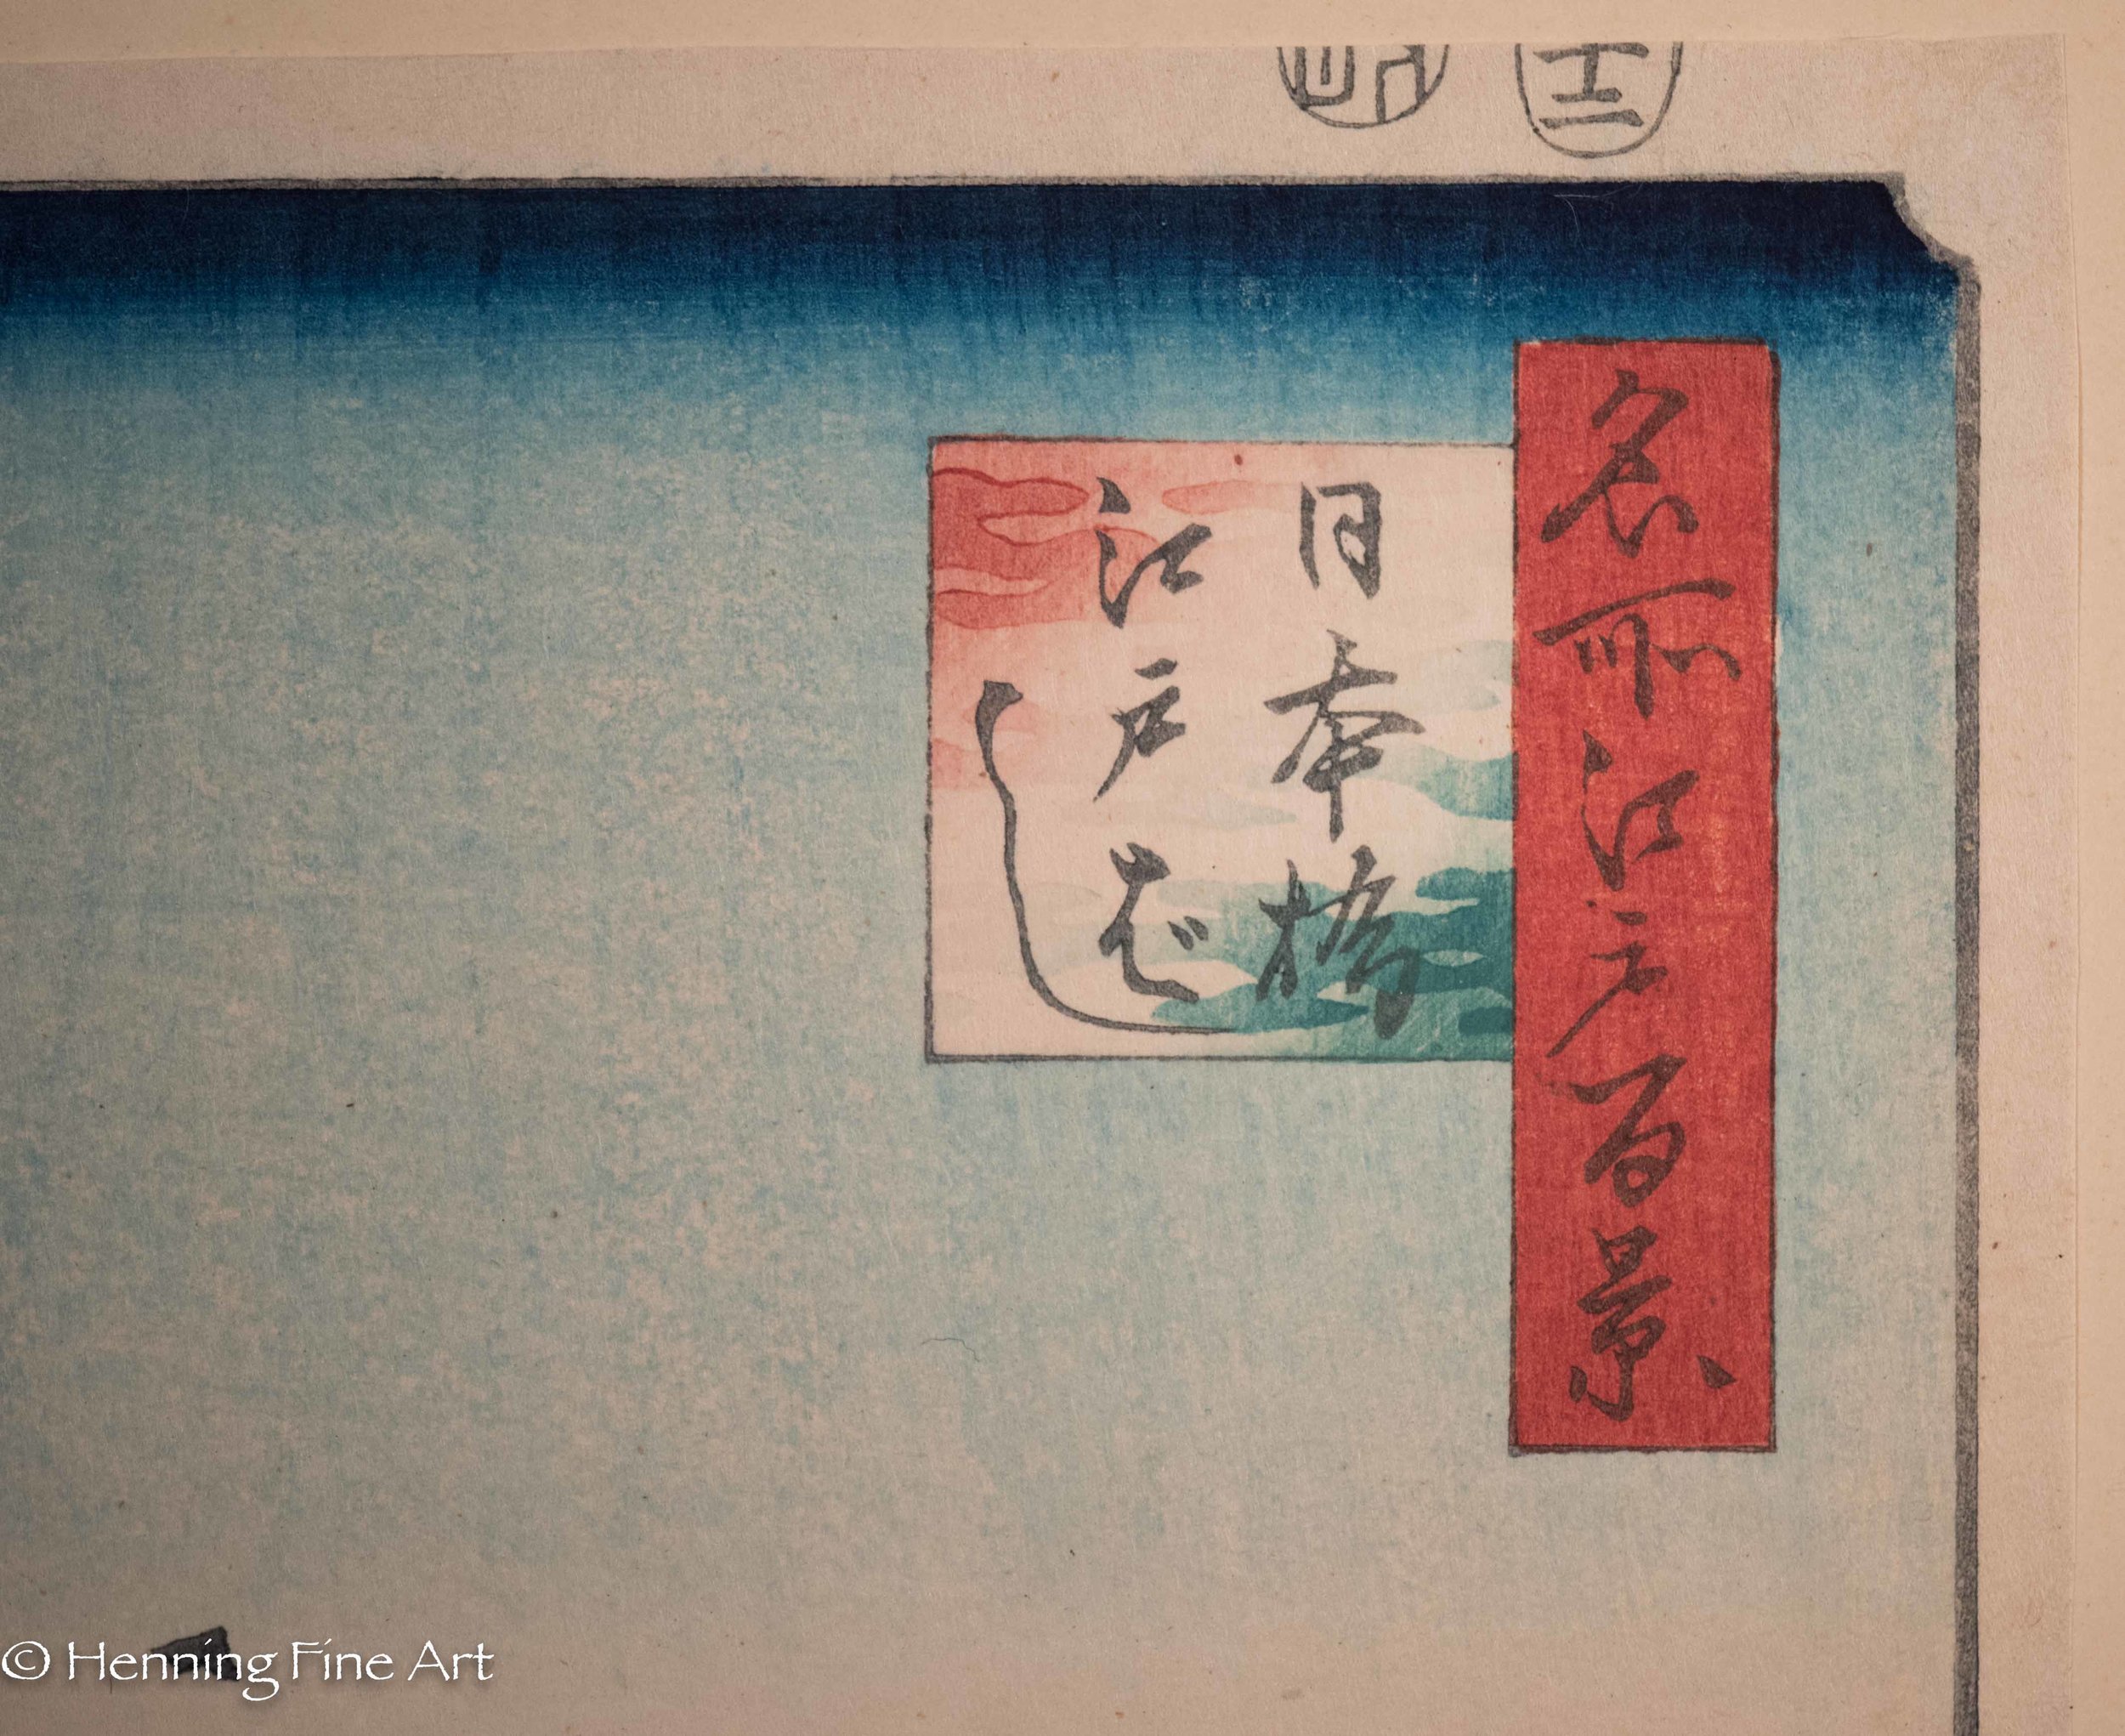 名所江戸百景
日本橋
江戸ばし
© Henning Fine Art